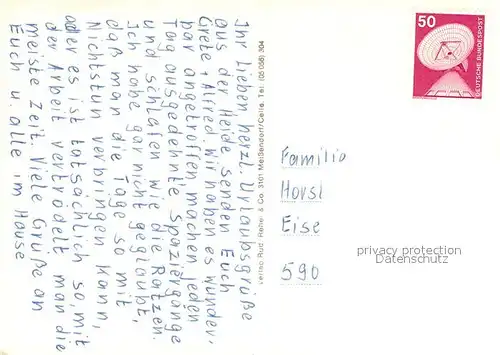 Ihr Lieben herzl. Urlaubsgrüße
aus der Heide senden Euch
Grete + Alfred. Wir haben es wunder-
bar angetroffen, machen jeden
Tag ausgedehnte Spaziergänge
und schlafen wie die Ratzen.
Ich habe gar nicht geglaubt,
daß man die Tage so mit
Nichtstun verbringen kann,
aber es ist tatsächlich so, mit
der Arbeit vertrödelt man die
meiste Zeit. Viele Grüße an
Euch u. alle im Hause
Verlag Rud. Reher & Co. 3101 Meißendorf/Celle. Tel. (05056) 304
50
DEUTSCHE BUNDESPOST
Familie
Horst
Eise
590
privacy protection
Datenschutz